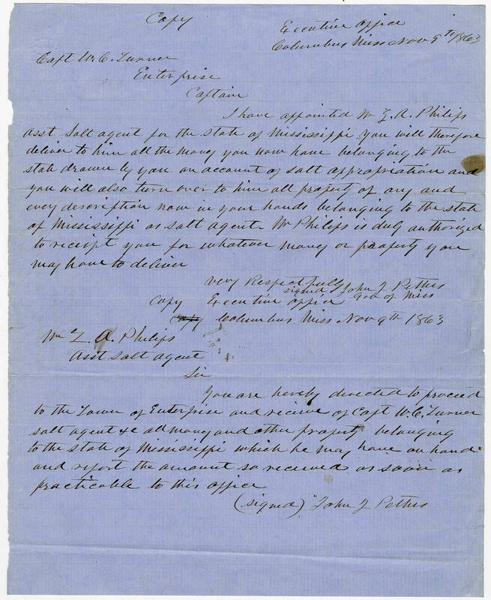 Copy
Executive office
Columbus Miss Nov 9th 1863
Capt W. C. Turner
Enterprise
Captain
I have appointed Mr Z. A. Philips
asst Salt agent for the state of Mississippi you will therefore
deliver to him all the money you now have belonging to the
state drawn by you on account of salt appropriation and
you will also turn over to him all propety of any and
every description now in your hands belonging to the state
of Mississippi as salt agent. Mr Philips is duly authorized
to receipt you for whatever money or property you
may have to deliver
very Respectfully
signed John J Pettus
Gov of Miss
Copy Executive office
Columbus Miss Nov 9th 1863
Mr Z. A. Philips
asst salt agent
Sir
You are hereby directed to proceed
to the Town of Enterprise and receive of Capt W. C. Turner
salt agent &c all money and other property belonging
to the state of Mississippi which he may have on hand
and report the amount so received as soon as
practicable to this office
(signed) John J Pettus